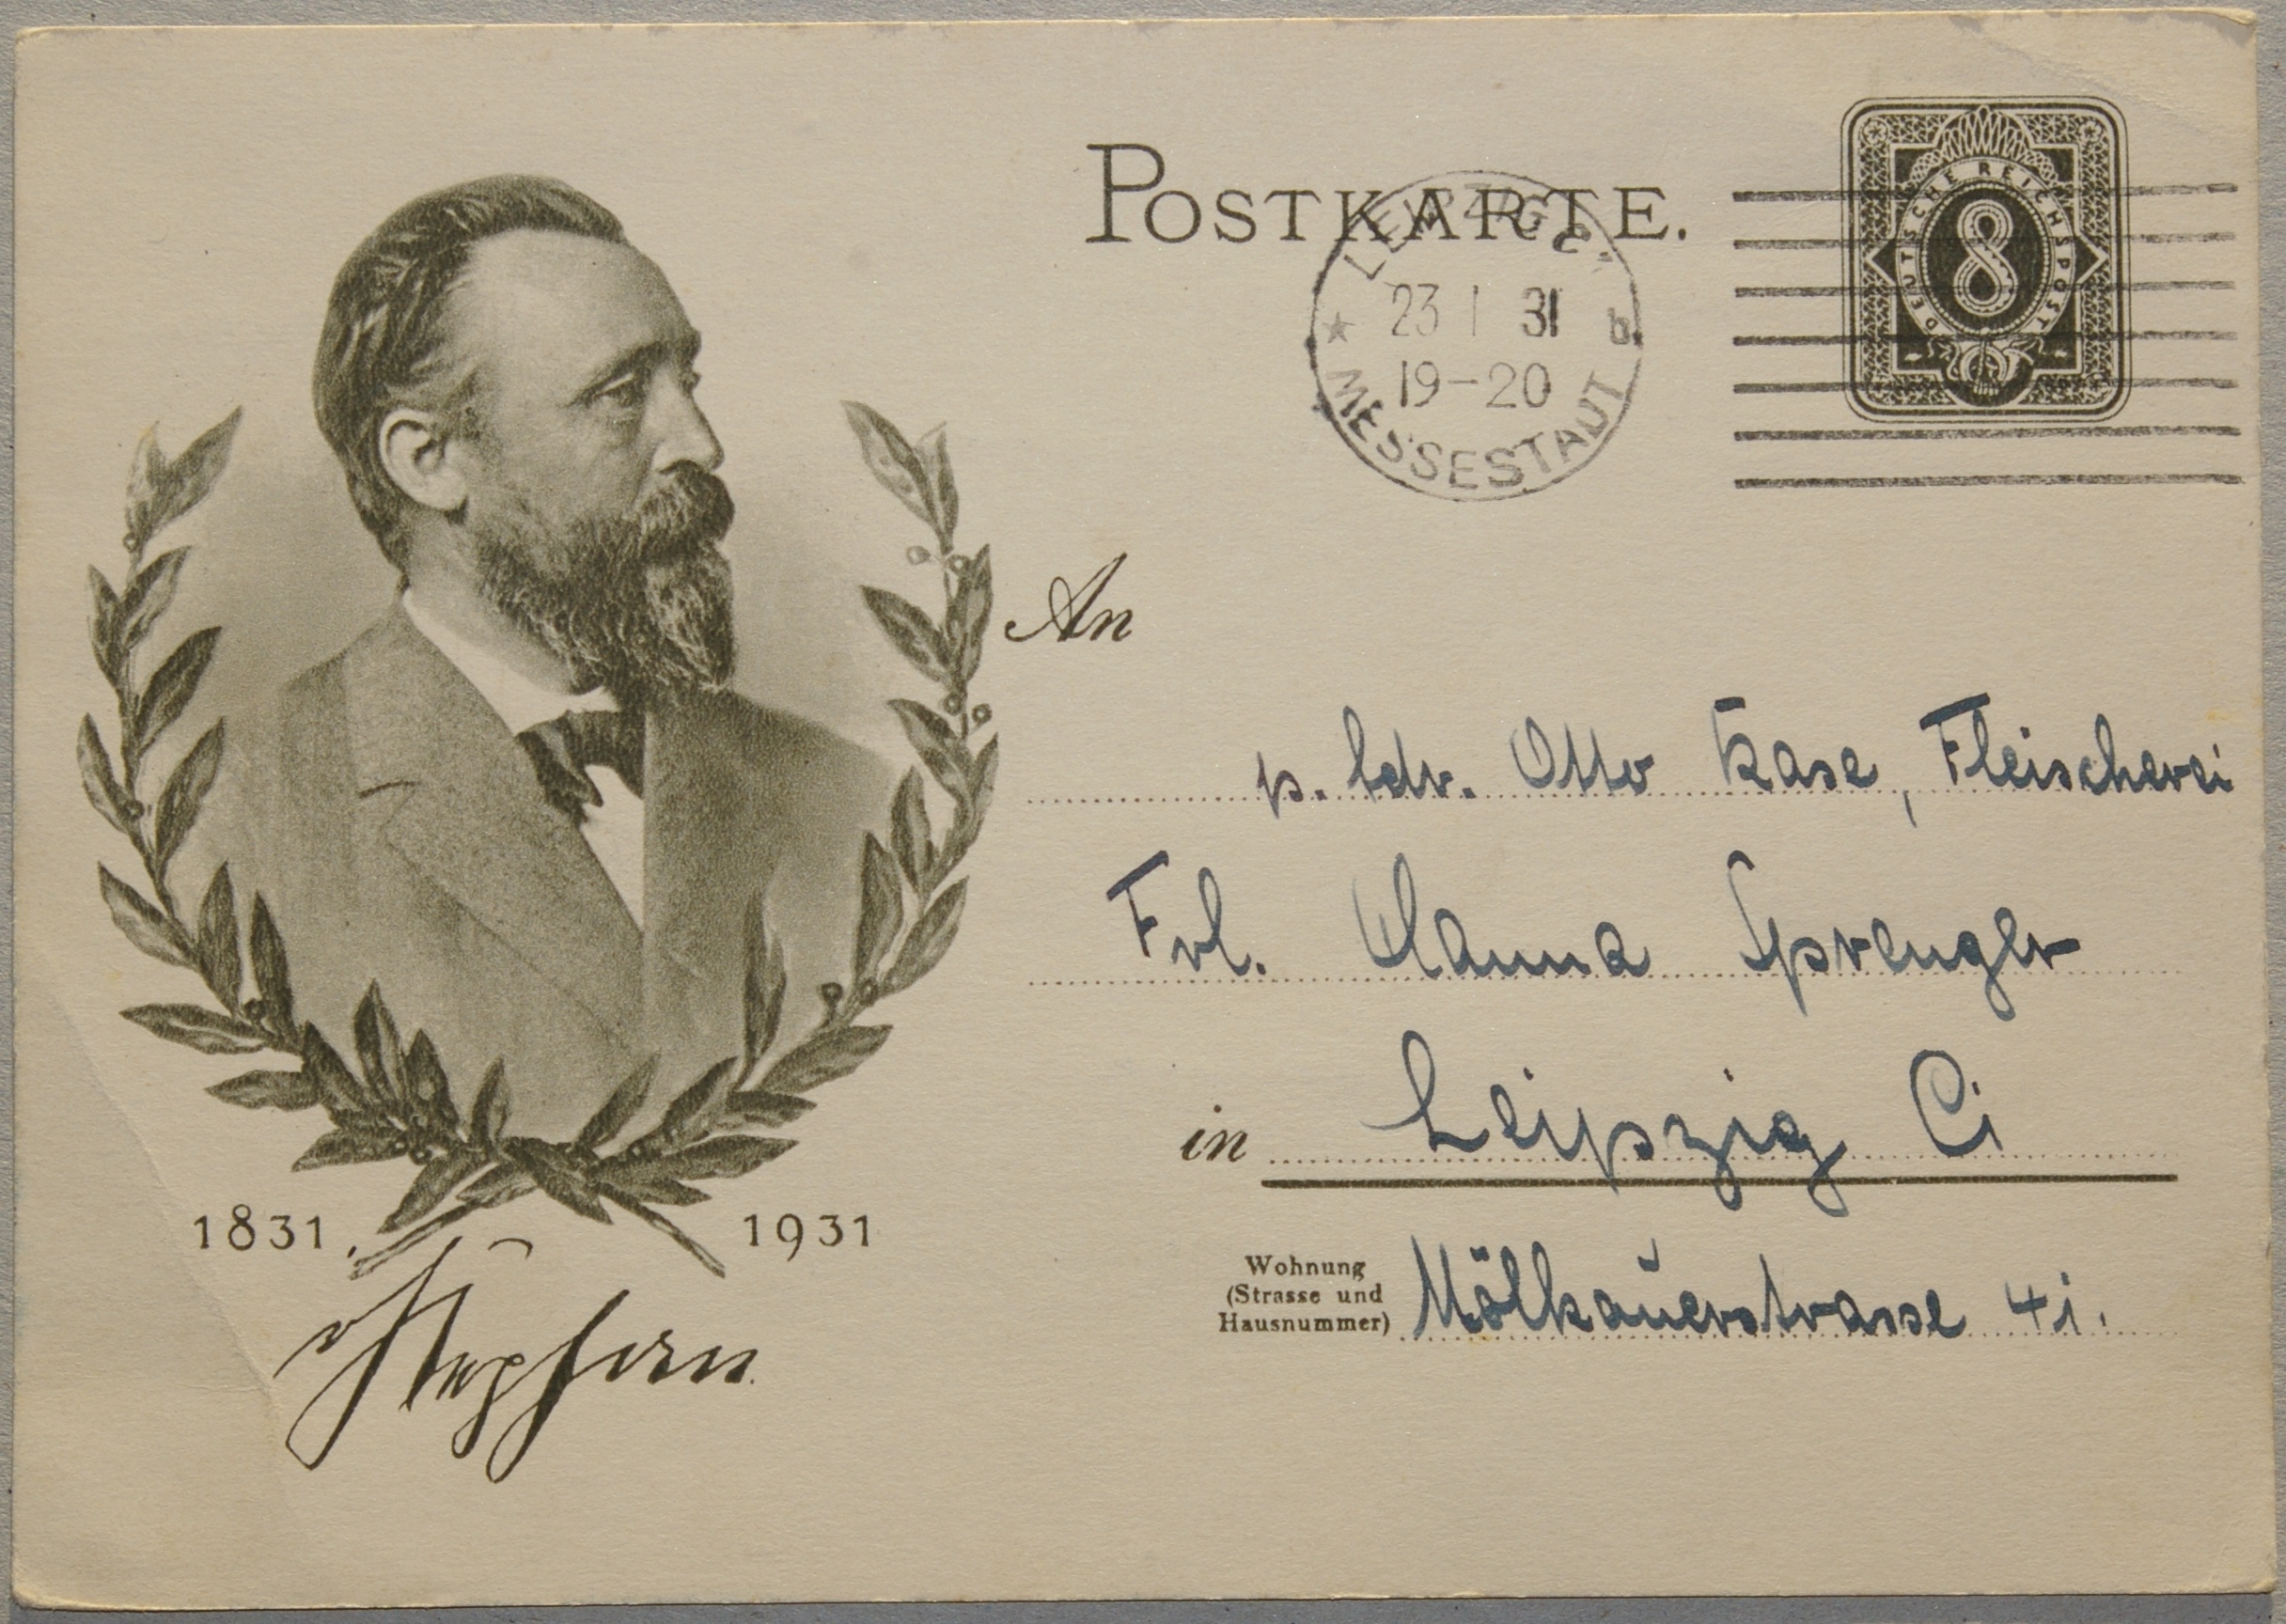 POSTKARTE.
DEUTSCHE REICHSPOST
8
LEIPZIG C
23 1 31
19-20
b
MESSESTADT
An
p. Adr. Otto Kase, Fleischerei
Frl. Hanna Sprenger
in Leipzig C1
Wohnung
(Strasse und
Hausnummer) Mölkauerstrasse 41.
1831 1931
Stephan